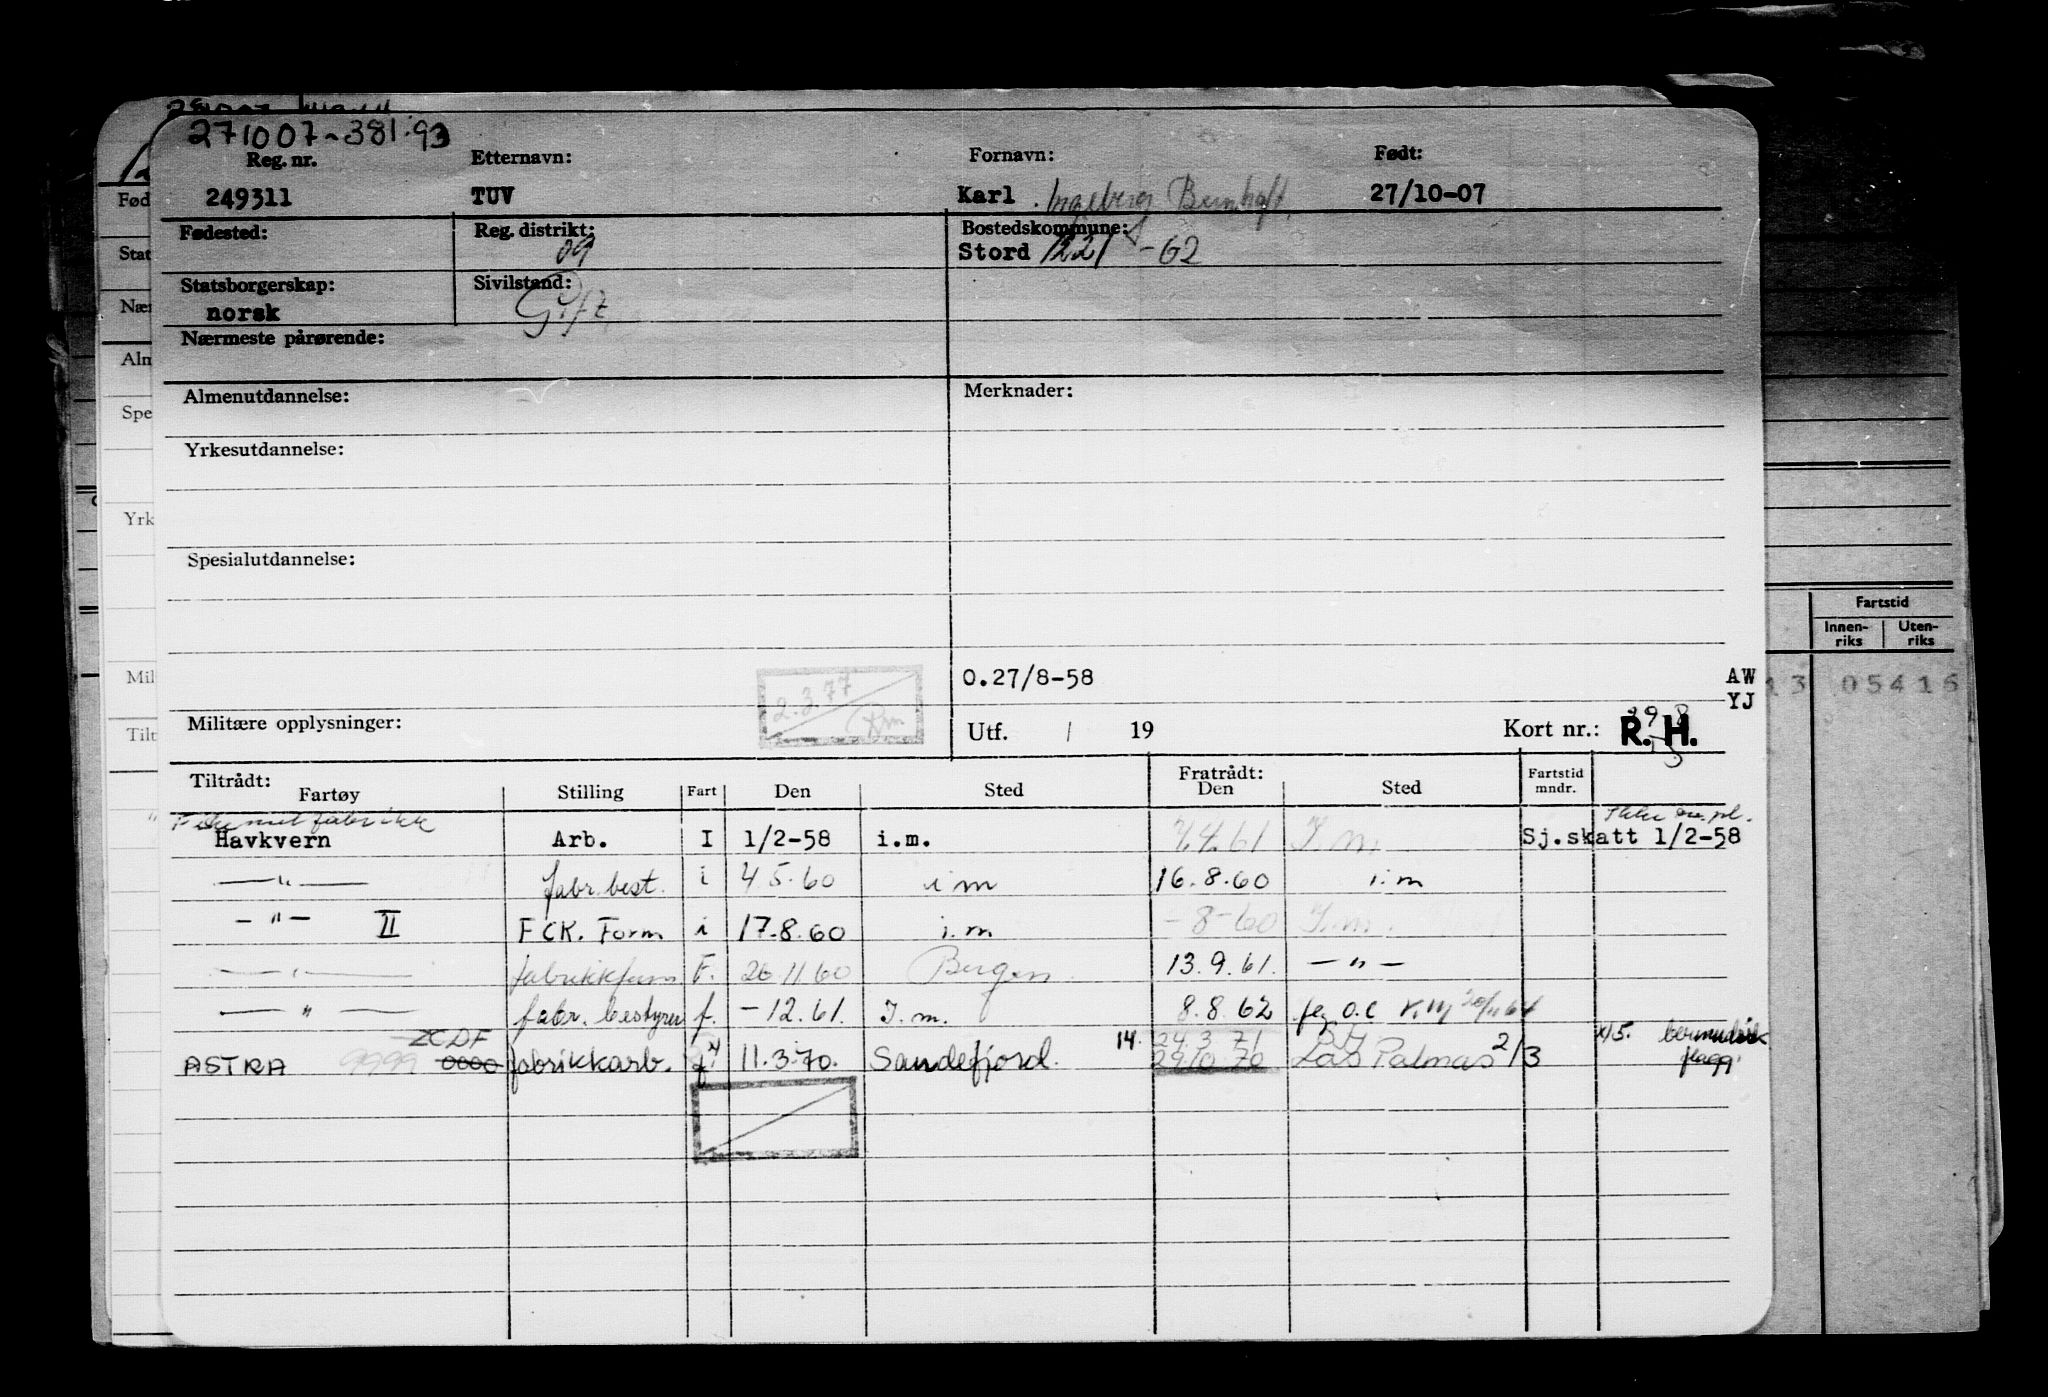 271007-381.93
Reg. nr. Etternavn: Fornavn: Født:
249311 TUV Karl 27/10-07
Fødested: Reg. distrikt: Bostedskommune:
09 Stord 1221 -62
Statsborgerskap: Sivilstand:
norsk Gift
Nærmeste pårørende:
Almenutdannelse: Merknader:
Yrkesutdannelse:
Spesialutdannelse:
0.27/8-58 AW
YJ
2.3.77
Militære opplysninger: Utf. / 19 Kort nr.: R. H.
Tiltrådt: Fratrådt: Fartstid
Fartøy Stilling Fart Den Sted Den Sted mndr.
Havkvern Arb. I 1/2-58 i.m. 7.4.61 I.m. Sj.skatt 1/2-58
—"— fabr. best. i 4.5.60 i m 16.8.60 i.m
-"- II FCK. Form i 17.8.60 i.m -8-60 I.m.
—"— F. 26.11.60 Bergen 13.9.61. -"-
—"— fabr. bestyrer f. -12.61. I.m. 8.8.62
ZCDF
ASTRA 9999 0000 fabrikkarb. f 11.3.70. Sandefjord. 14. 24.3.71
29.10.70 Las Palmas 2/3 flagg
Fød
Stat
Nær
Alm
Spe
Yrk
Mil
Tilt
Fartstid
Innen-riks Uten-riks
13 05416